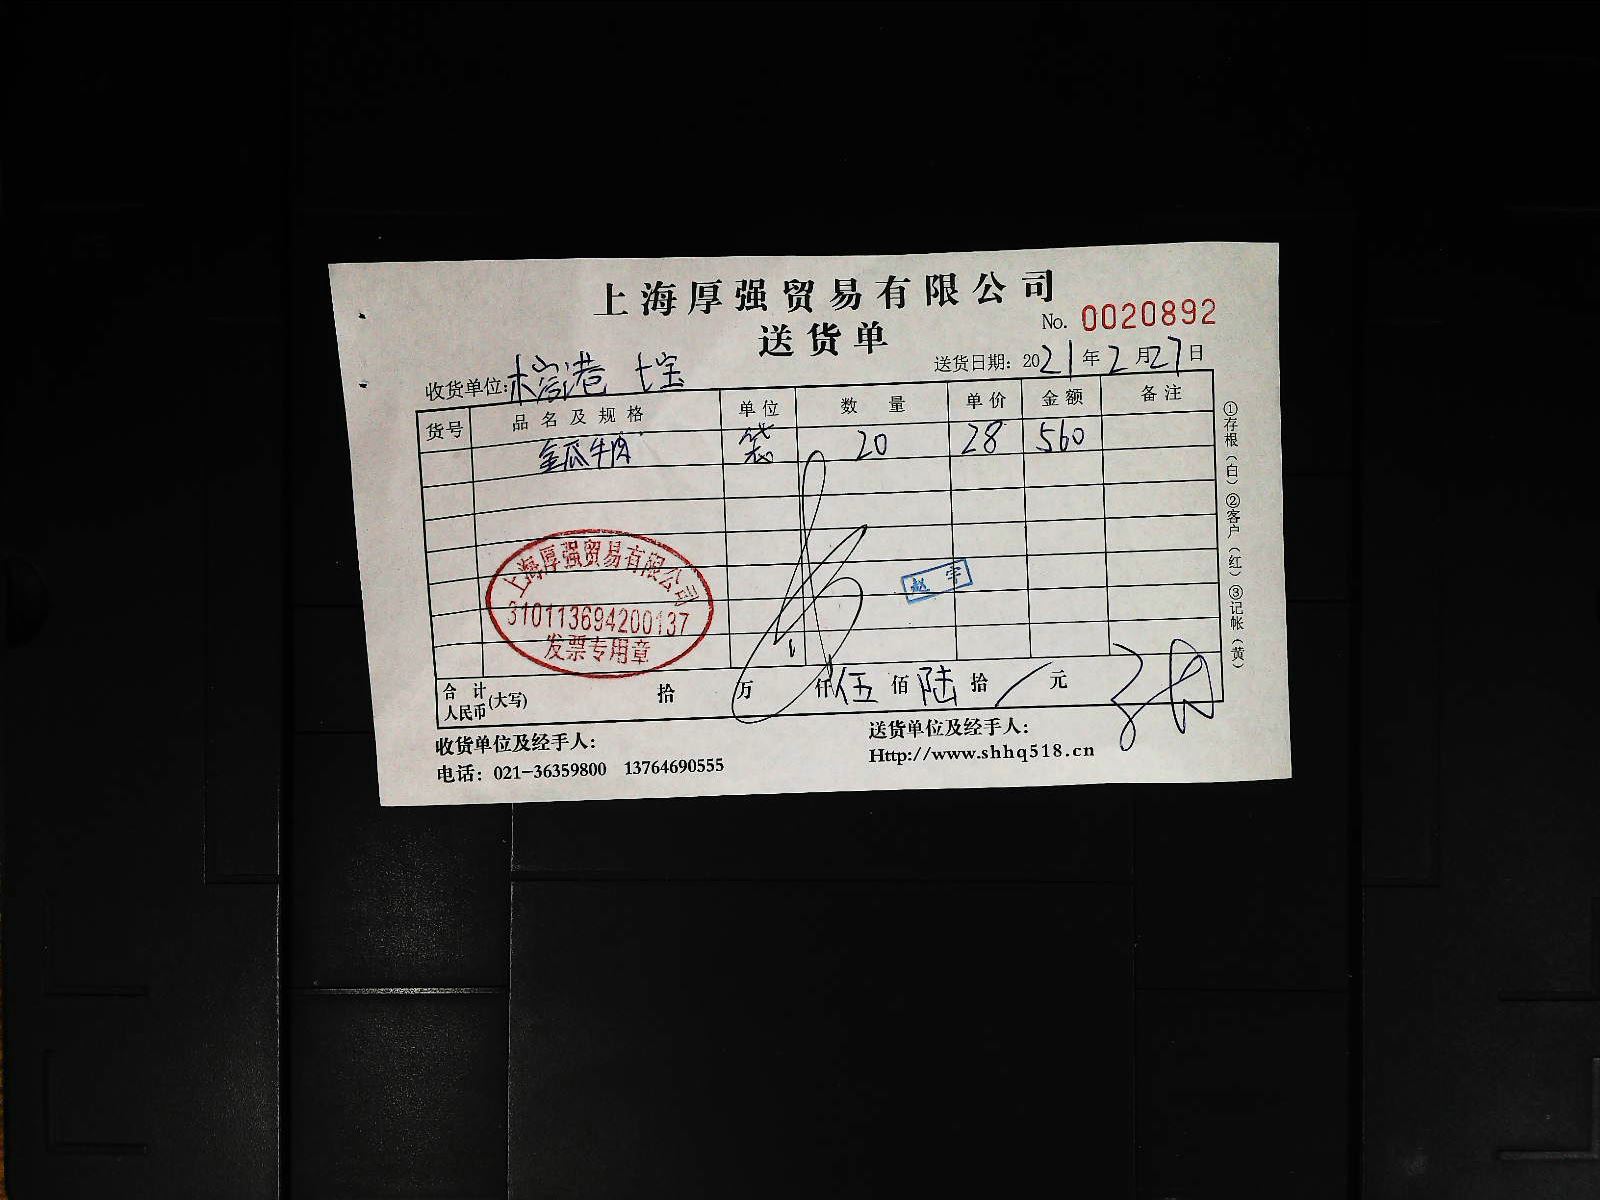 上海厚强贸易有限公司
送货单
No. 0020892
收货单位: 七宝
送货日期: 2021年2月27日
货号 品名及规格 单位 数量 单价 金额 备注
金瓜牛肉 袋 20 28 560
上海厚强贸易有限公司
310113694200137
发票专用章
赵宇
合计人民币(大写) 拾 万 仟 伍 佰 陆 拾 元
收货单位及经手人:
送货单位及经手人:
电话: 021-36359800 13764690555
Http://www.shhq518.cn
①存根(白)②客户(红)③记帐(黄)